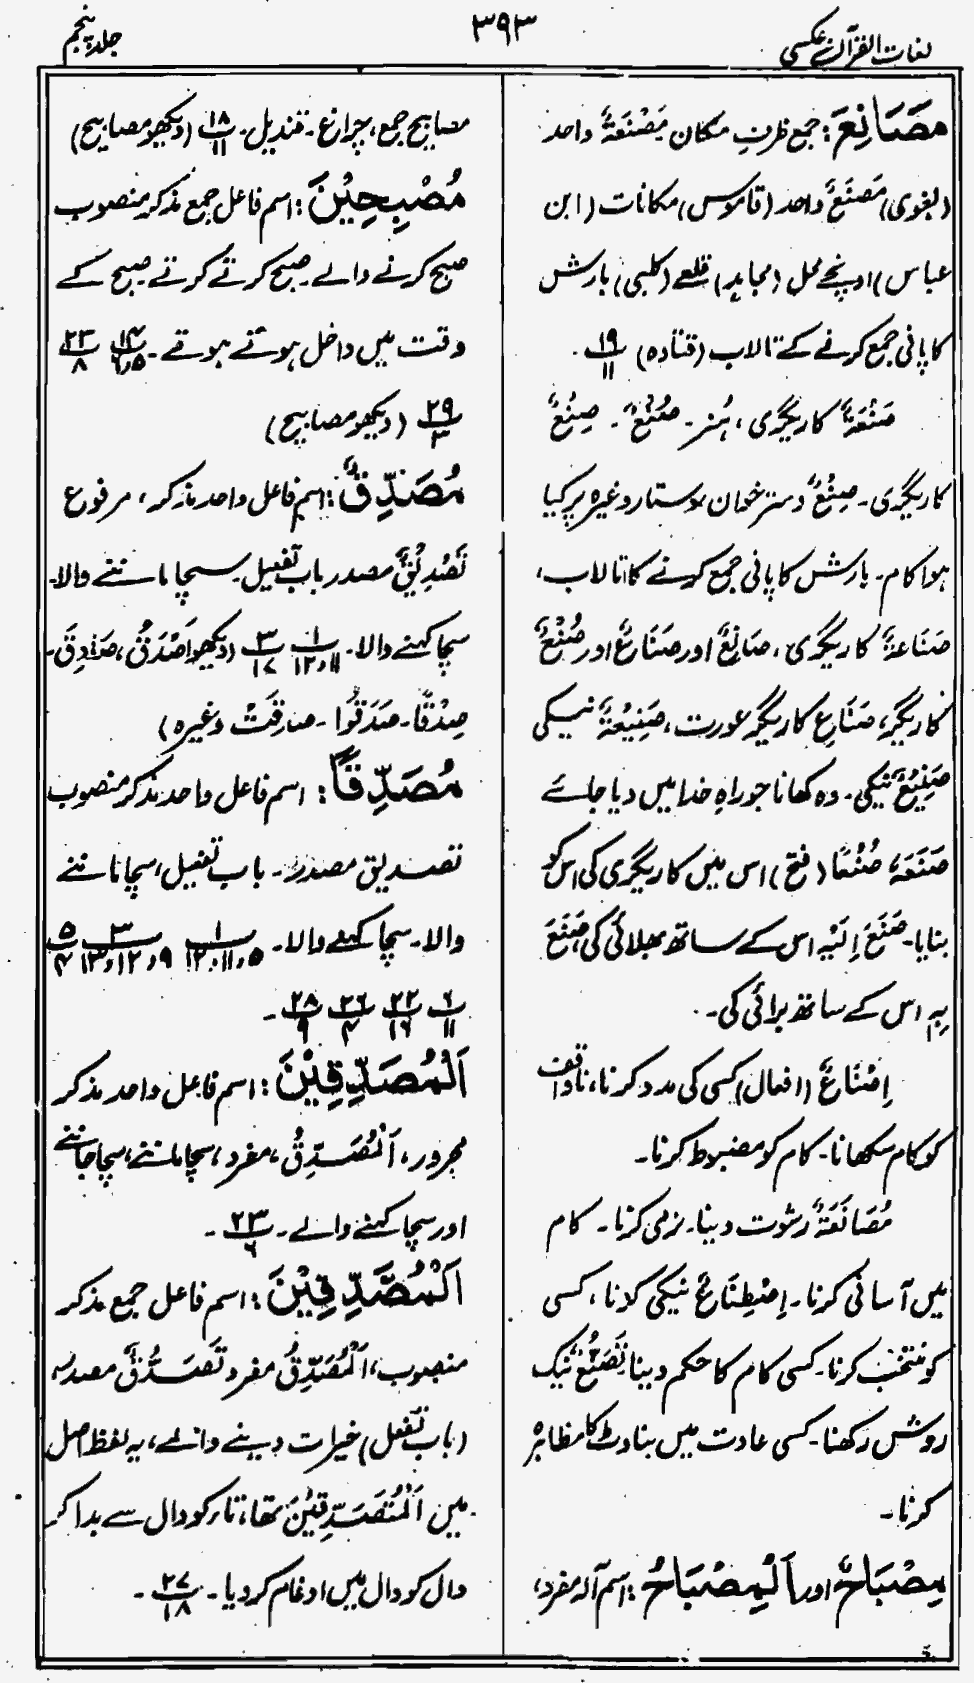 لغات القرآن عکسی
۳۹۳
جلد پنجم
مَصَانِعَ: جمع ظرفِ مکان مَصْنَعَۃٌ واحد
(بغوی) مَصْنَعٌ واحد (قاموس) مکانات (ابن
عباس) اونچے محل (مجاہد) قلعے (کلبی) بارش
کا پانی جمع کرنے کے تالاب (قتادہ) ۱۹/۱۱ ۔
صَنْعَۃٌ کاریگری، ہُنر۔ صُنْعٌ۔ صِنْعٌ
کاریگری۔ صِنْعٌ دسترخوان دستار وغیرہ پر کیا
ہوا کام۔ بارش کا پانی جمع کرنے کا تالاب،
صَنَاعَۃٌ کاریگری، صَانِعٌ اور صَنَاعٌ اور صُنْعٌ
کاریگر، صَنَاعِ کاریگر عورت، صَنِیْعَۃٌ نیکی
صَنِیْعٌ نیکی۔ وہ کھانا جو راہِ خدا میں دیا جائے
صَنَعَہٗ صُنْعًا (فتح) اس میں کاریگری کی اس کو
بنایا۔ صَنَعَ اِلَیْہِ اس کے ساتھ بھلائی کی صَنَعَ
بِہٖ اس کے ساتھ برائی کی۔
اِصْنَاعٌ (افعال) کسی کی مدد کرنا، ناواقف
کو کام سکھانا۔ کام کو مضبوط کرنا۔
مُصَانَعَۃٌ رشوت دینا۔ نرمی کرنا۔ کام
میں آسانی کرنا۔ اِصْطِنَاعٌ نیکی کرنا، کسی
کو منتخب کرنا۔ کسی کام کا حکم دینا تَصَنُّعٌ نیک
روش رکھنا۔ کسی عادت میں بناوٹ کا مظاہرہ
کرنا۔
مِصْبَاحٌ اور اَلْمِصْبَاحُ: اسم آلہ مفرد،
مصابیح جمع، چراغ۔ قندیل۔ ۱۸/۱۱ (دیکھو مصابیح)
مُصْبِحِیْنَ: اسم فاعل جمع مذکر منصوب
صبح کرنے والے۔ صبح کرتے کرتے۔ صبح کے
وقت میں داخل ہوتے ہوتے۔ ۱۴/۶،۵ ۲۳/۸
۲۹/۳ (دیکھو مصابیح)
مُصَدِّقٌ: اسم فاعل واحد مذکر، مرفوع
تَصْدِیْقٌ مصدر باب تفعیل۔ سچا ماننے والا۔
سچا کہنے والا۔ ۱/۱۲،۱۱ ۳/۱۷ (دیکھو اَصْدَقُ، صَادِقَ۔
صِدْقًا۔ صَدَقُوا۔ صادقت وغیرہ)
مُصَدِّقًا: اسم فاعل واحد مذکر منصوب
تصدیق مصدر۔ باب تفعیل، سچا ماننے
والا۔ سچا کہنے والا۔ ۱/۱۲،۱۱،۵ ۳/۱۳،۱۲،۹ ۵/۴
۶/۱۱ ۲۲/۱۶ ۲۶/۴ ۲۸/۹ ۔
اَلْمُصَدِّقِیْنَ: اسم فاعل واحد مذکر
مجرور، اَلْمُصَدِّقُ، مفرد، سچا ماننے، سچا جاننے
اور سچا کہنے والے۔ ۲۳/۶ ۔
اَلْمُصَّدِّقِیْنَ: اسم فاعل جمع مذکر
منصوب، اَلْمُصَّدِّقُ مفرد تَصَدُّقٌ مصدر
(باب تفعل) خیرات دینے والے، یہ لفظ اصل
میں اَلْمُتَصَدِّقِیْنَ تھا، تاء کو دال سے بدل کر
دال کو دال میں ادغام کر دیا۔ ۲۷/۱۸ ۔